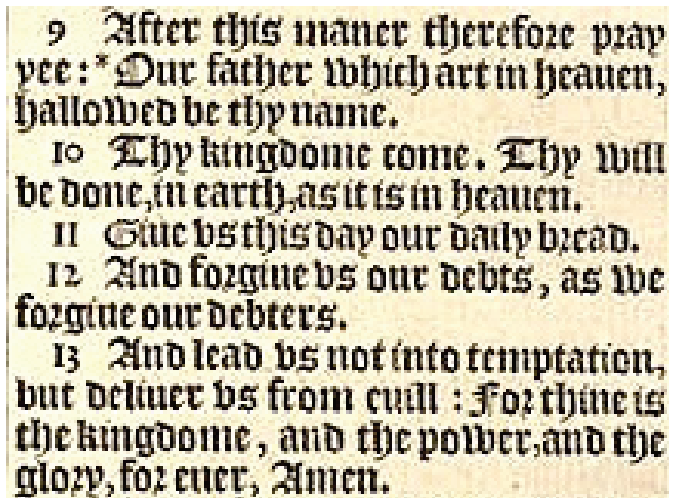 9 After this maner therefore pray
yee:* Our father which art in heauen,
hallowed be thy name.
10 Thy kingdome come. Thy will
be done, in earth, as it is in heauen.
11 Giue vs this day our daily bread.
12 And forgiue vs our debts, as we
forgiue our debters.
13 And lead vs not into temptation,
but deliuer vs from euill : For thine is
the kingdome, and the power, and the
glory, for euer, Amen.